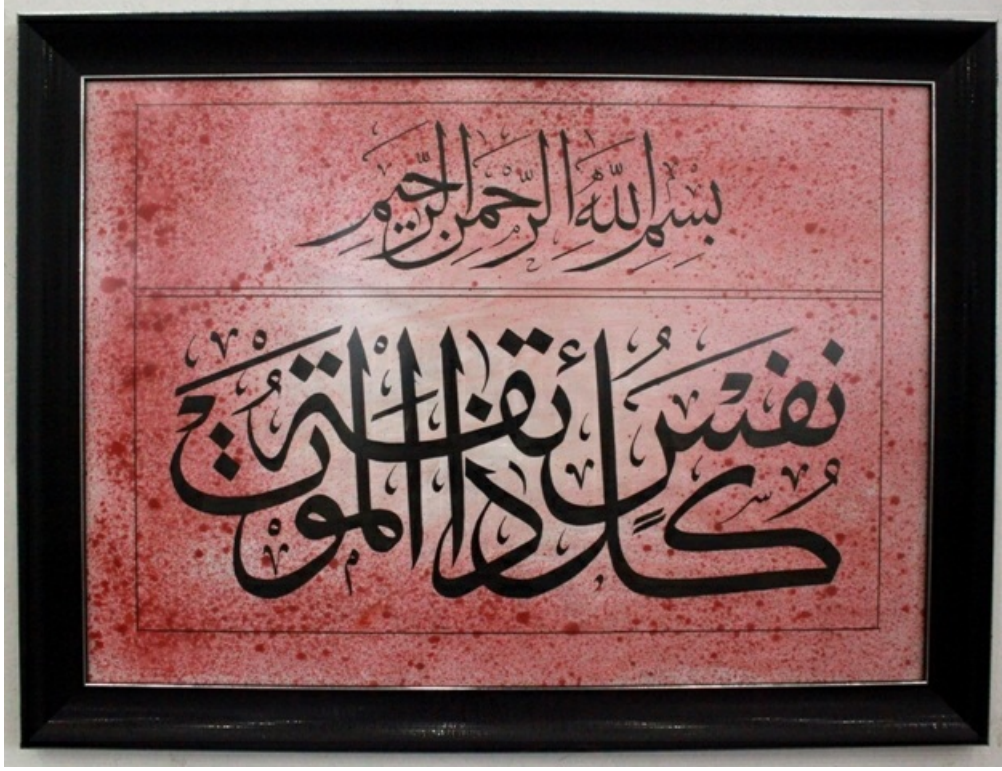 بِسْمِ اللَّهِ الرَّحْمَنِ الرَّحِيمِ
كُلُّ نَفْسٍ ذَائِقَةُ الْمَوْتِ